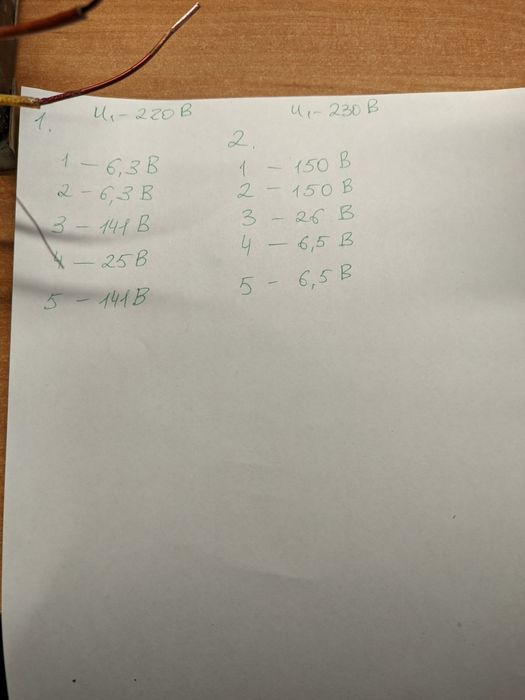 1. U₁ – 220 В
1 – 6,3 В
2 – 6,3 В
3 – 141 В
4 – 25 В
5 – 141 В
U₁ – 230 В
2.
1 – 150 В
2 – 150 В
3 – 26 В
4 – 6,5 В
5 – 6,5 В